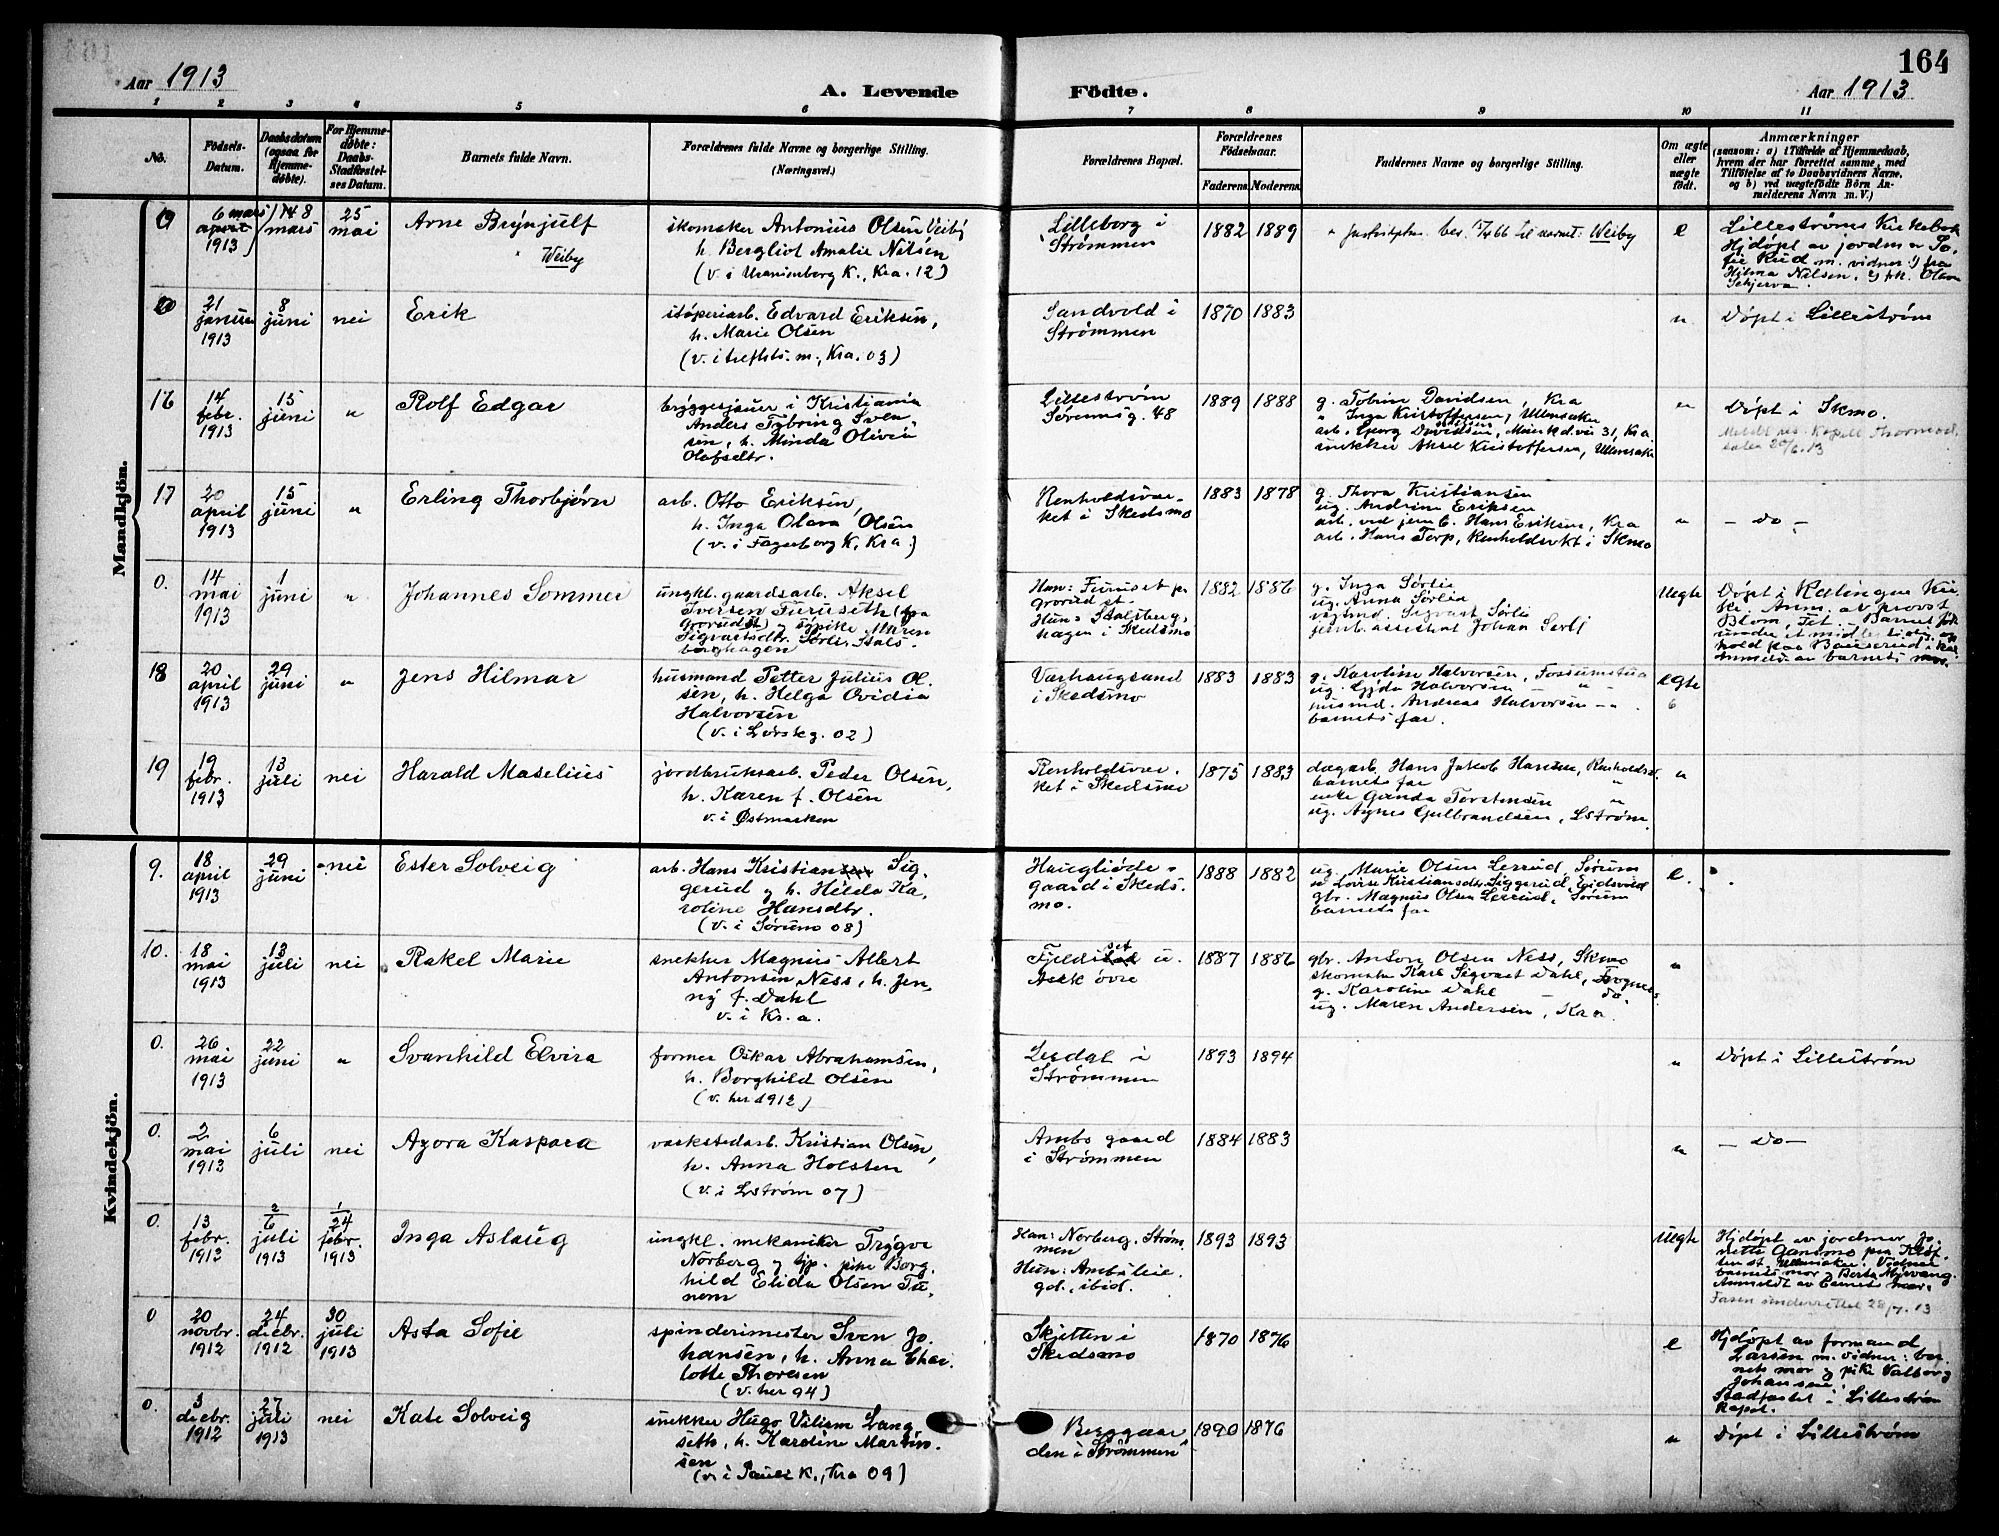 164
Aar 1913
A. Levende Födte.
Aar 1913
1 2 3 4 5 6 7 8 9 10 11
No.
Födsels-Datum.
Daabsdatum (ogsaa for Hjemmedöbte).
For Hjemmedöbte: Daabs-Stadfæstelses Datum.
Barnets fulde Navn.
Forældrenes fulde Navne og borgerlige Stilling.
(Næringsvei.)
Forældrenes Bopæl.
Forældrenes Födselsaar.
Faderens. Moderens.
Faddernes Navne og borgerlige Stilling.
Om ægte eller uægte födt.
Anmærkninger
(saasom: a) i Tilfælde af Hjemmedaab, hvem der har forrettet samme, med Tilföielse af to Daabsvidners Navne, og b) ved uægtefödte Börn Anmelderens Navn m. V.)
Mandkjön.
6 mars
april
1913
8
mars
25
mai
Arne Brynjulf
Weiby
skomaker Antonius Olsen Veiby
h. Bergliot Amalie Nilsen
(v. i Uranienborg K., Kra. 12)
Lilleborg i
Strømmen
1882 1889
til navnet: Weiby
e
Lillestrøms Kirkebok
Hjdøpt av jordm.
m. vidner
Hilma Nilsen.
21
januar
1913
8
juni
nei
Erik
støperiarb. Edvard Eriksen,
h. Marie Olsen
Kra. 03)
Sandvold i
Strømmen
1870 1883
"
Døpt i Lillestrøm
16
14
febr.
1913
15
juni
"
Rolf Edgar
bryggesjauer i Kristiania
Anders Tybring Svensen, h. Minda Olivia
Olafsdtr.
Lillestrøm
Sørumsg. 48
1889 1888
g. Tobine Davidsen, Kra
" Inga Kristoffersen, Ullensaker
arb. Georg Davidsen, 31, Kra
snekker Aksel Kristoffersen, Ullensaker
"
Døpt i Skmo.
17
20
april
1913
15
juni
"
Erling Thorbjørn
arb. Otto Eriksen,
h. Inga Olava Olsen
(v. i Fagerborg K, Kra)
Renholdsverket i Skedsmo
1883 1878
g. Thora Kristiansen
ug. Andrine Eriksen
arb. ved jernb. Hans Eriksen, Kra
arb. Hans Torp, Renholdsvkt i Skmo
"
- do -
0.
14
mai
1913
1
juni
"
Johannes Sommer
ungkl. gaardsarb. Aksel
Iversen Furuseth
Grorud st) og pike Maren
Sigvartsdtr. Sørli, Stalsberghagen
Han: Furuset pr
Grorud st.
Hun: Stalsberghagen i Skedsmo
1882 1886
g. Inga Sørlie
ug. Anna Sørlie
Sigvart Sørli
jernb. assistent Johan Sørli
Uegte
Døpt i Rælingen Kirke. Anm. av provst
Blom, Fet. Barnet
18
20
april
1913
29
juni
"
Jens Hilmar
husmand Petter Julius Olsen, h. Helga Ovidia
Halvorsen
(v. i Lørskg. 02)
Varhaugsand
i Skedsmo
1883 1883
g. Karoline Halvorsen, Fossumstua
ug. Gyda Halvorsen "
husmd. Andreas Halvorsen - " .
barnets far.
egte
19
19
febr.
1913
13
juli
nei
Harald Maselius
jordbruksarb. Peder Olsen,
h. Karen f. Olsen
v. i Østmarken
Renholdsverket i Skedsmo
1875 1883
dagarb. Hans Jakob Hansen, Renholdsv.
barnets far "
enke Ganda Torstensen "
ug. Agnes Gulbrandsen, Lstrøm
"
Kvindekjön.
9.
18
april
1913
29
juni
nei
Ester Solveig
arb. Hans Kristian Siggerud og h. Hilda Karoline Hansdtr.
(v. i Sørum 08)
Haugliødegaard i Skedsmo.
1888 1882
ug. Marie Olsen Lerrud, Sørum
" Lovise Kristiansdtr Siggerud, Eidsvold
gbr. Magnus Olsen Lerrud, Sørum
barnets far
e.
10.
18
mai
1913
13
juli
nei
Rakel Marie
snekker Magnus Albert
Antonsen Ness, h. Jenny f. Dahl
v. i Kr.a.
Fjeldset u.
Aset øvre
1887 1886
gbr. Anton Olsen Ness, Skmo
skomaker Karl Sigvart Dahl, Frogner
g. Karoline Dahl do.
ug. Maren Andersen, Kra
"
0.
26
mai
1913
22
juni
"
Svanhild Elvira
former Oskar Abrahamsen,
h. Borghild Olsen
(v. her 1912)
Lerdal i
Strømmen
1893 1894
"
Døpt i Lillestrøm
0.
2
mai
1913
6
juli
nei
Azora Kaspara
verkstedarb. Kristian Olsen,
h. Anna Holsten
(v. i Lstrøm 07)
Ambo gaard
i Strømmen
1884 1883
"
- do -
0.
13
febr.
1913
2/6
juli
1913
1/24
febr.
1913
Inga Aslaug
ungkl. mekaniker Trygve
Norberg og tjp. pike Borghild Elida Olsen
Han: Norberg, Strømmen
Hun:
gd., ibid.
1893 1893
Uegte
Hjdøpt av jordmor
Ullensaker. Vidner
barnets mor og Berta Myrvang.
Anmeldt av barnets mor.
Faren underrettet 28/7. 13
0
20
novbr.
1912
24
decbr.
1912
30
juli
1913
Asta Sofie
spinderimester Sven Johansen, h. Anna Charlotte Thoresen
(v. her 94)
Skjetten i
Skedsmo
1870 1876
e
Hjdøpt av formand
Larsen m. vidner: barnets mor og pike Valborg
Johansen.
Stadfæstet i Lillestrøm
kapel.
0.
3
decbr.
1912
27
juli
1913
nei
Kate Solveig
snekker Hugo Vilism Langseth, h. Karoline Martinsen
(v. i Pauls K., Kra 09)
Berggaarden i Strømmen
1890 1876
"
Døpt i Lillestrøm